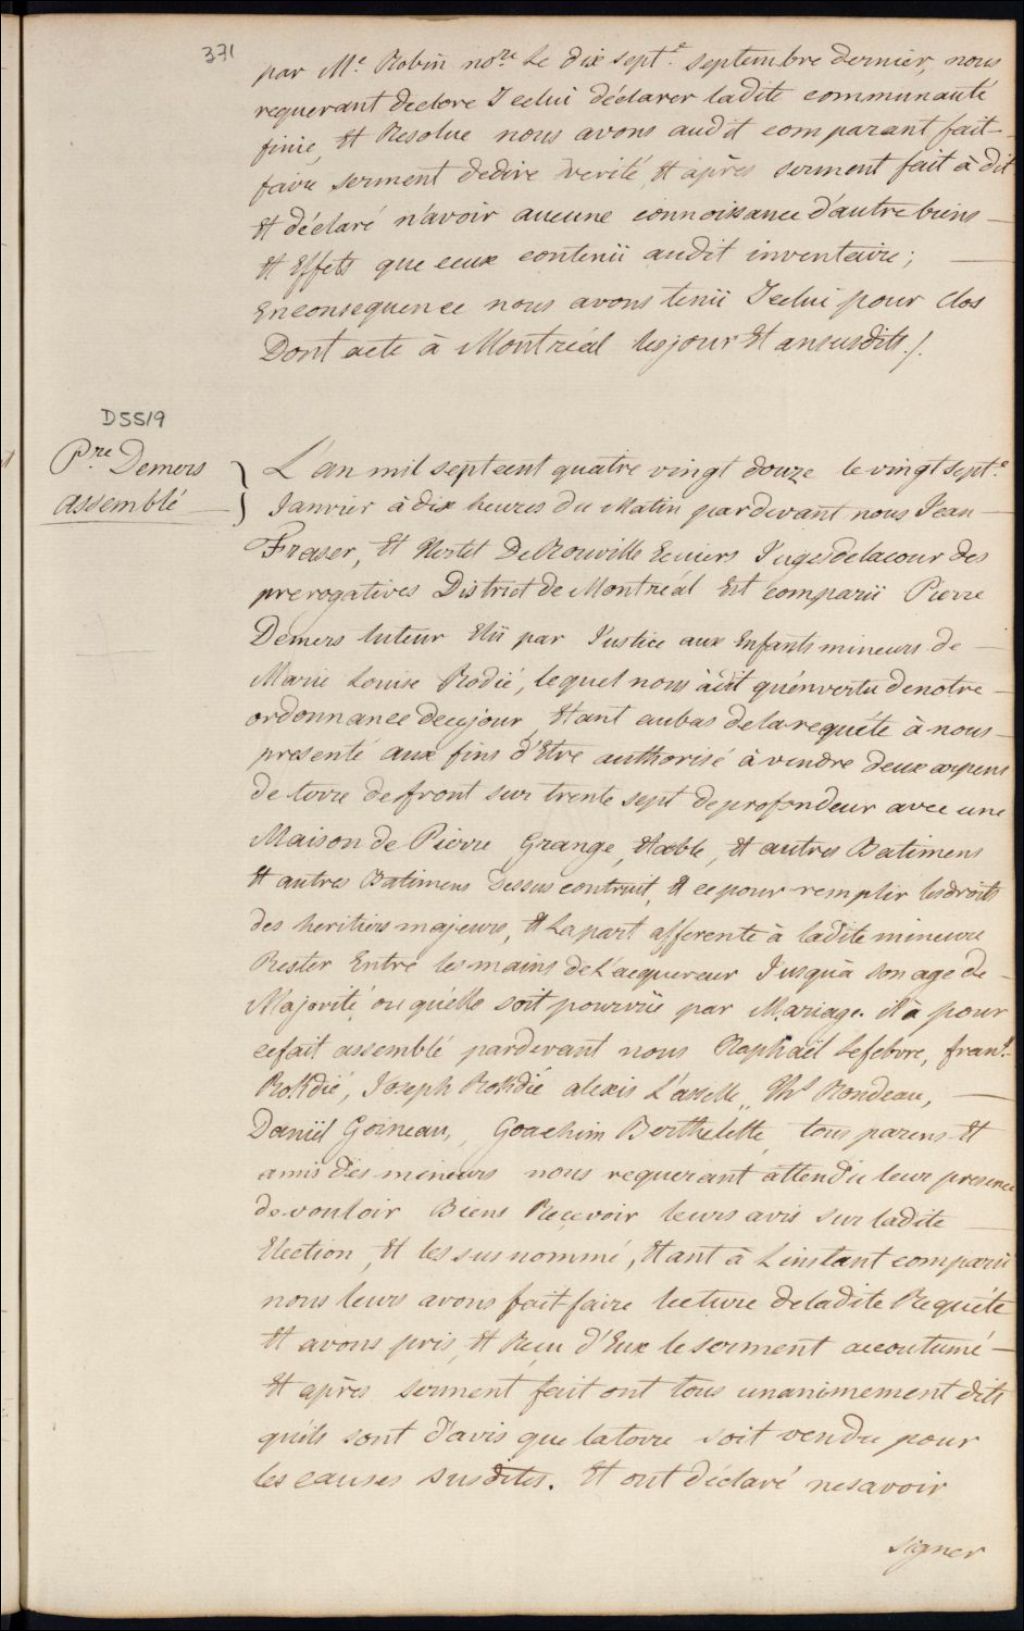 371
par Me. Robin nore. Le dix septe. septembre dernier, nous
requerant declore Icelui déclarer ladite communauté
finie, Et Resolue nous avons audit comparant fait
faire serment dedire verité, Et après serment fait à dit
Et déclaré n'avoir aucune connoissance d'autre biens
Et Effets que ceux contenü audit inventaire;
Enconsequence nous avons tenü Icelui pour clos
Dont acte à Montréal lesjour Et ansusdits ./.
D5519
Pre. Demers
assemblé
L'an mil septcent quatre vingt douze le vingt septe.
Janvier à dix heures du Matin pardevant nous Jean
Fraser, Et Hertel DeRouville Ecuiers Jugesdelacour des
prerogatives District de Montréal Est comparü Pierre
Demers tuteur Elü par Justice aux Enfants mineurs de
Marie Louise Rodié, lequel nous àdit qu'envertu denotre
ordonnance decejour, Etant aubas delarequête à nous
presenté aux fins d'Etre authorisé à vendre deux arpens
de terre defront sur trente sept deprofondeur avec une
Maison de Pierre Grange, Etable, Et autres Batimens
Et autres Batimens dessus contruit, Et cepour remplir lesdroits
des heritiers majeurs, Et Lapart afferente à ladite mineure
Rester Entre les mains deL'acquereur Jusqu'à son age de
Majorité ou qu'elle soit pourvüe par Mariage. il à pour
cefait assemblé pardevant nous Raphaël Lefebvre, frans.
Joseph alexis Ths Rondeau,
Daniël Goineau, Goachim Berthelette tous parens Et
amis des mineurs nous requerant attendu leur presence
de vouloir Biens Recevoir leurs avis sur ladite
Election, Et les sus nommé, Etant à Linstant comparü
nous leurs avons fait faire lecture deladite Requête
Et avons pris, Et Recu d'Eux le serment accoutumé
Et après serment fait ont tous unanimement dits
qu'ils sont d'avis que laterre soit vendu pour
les causes susdites. Et ont déclaré nesavoir
signer